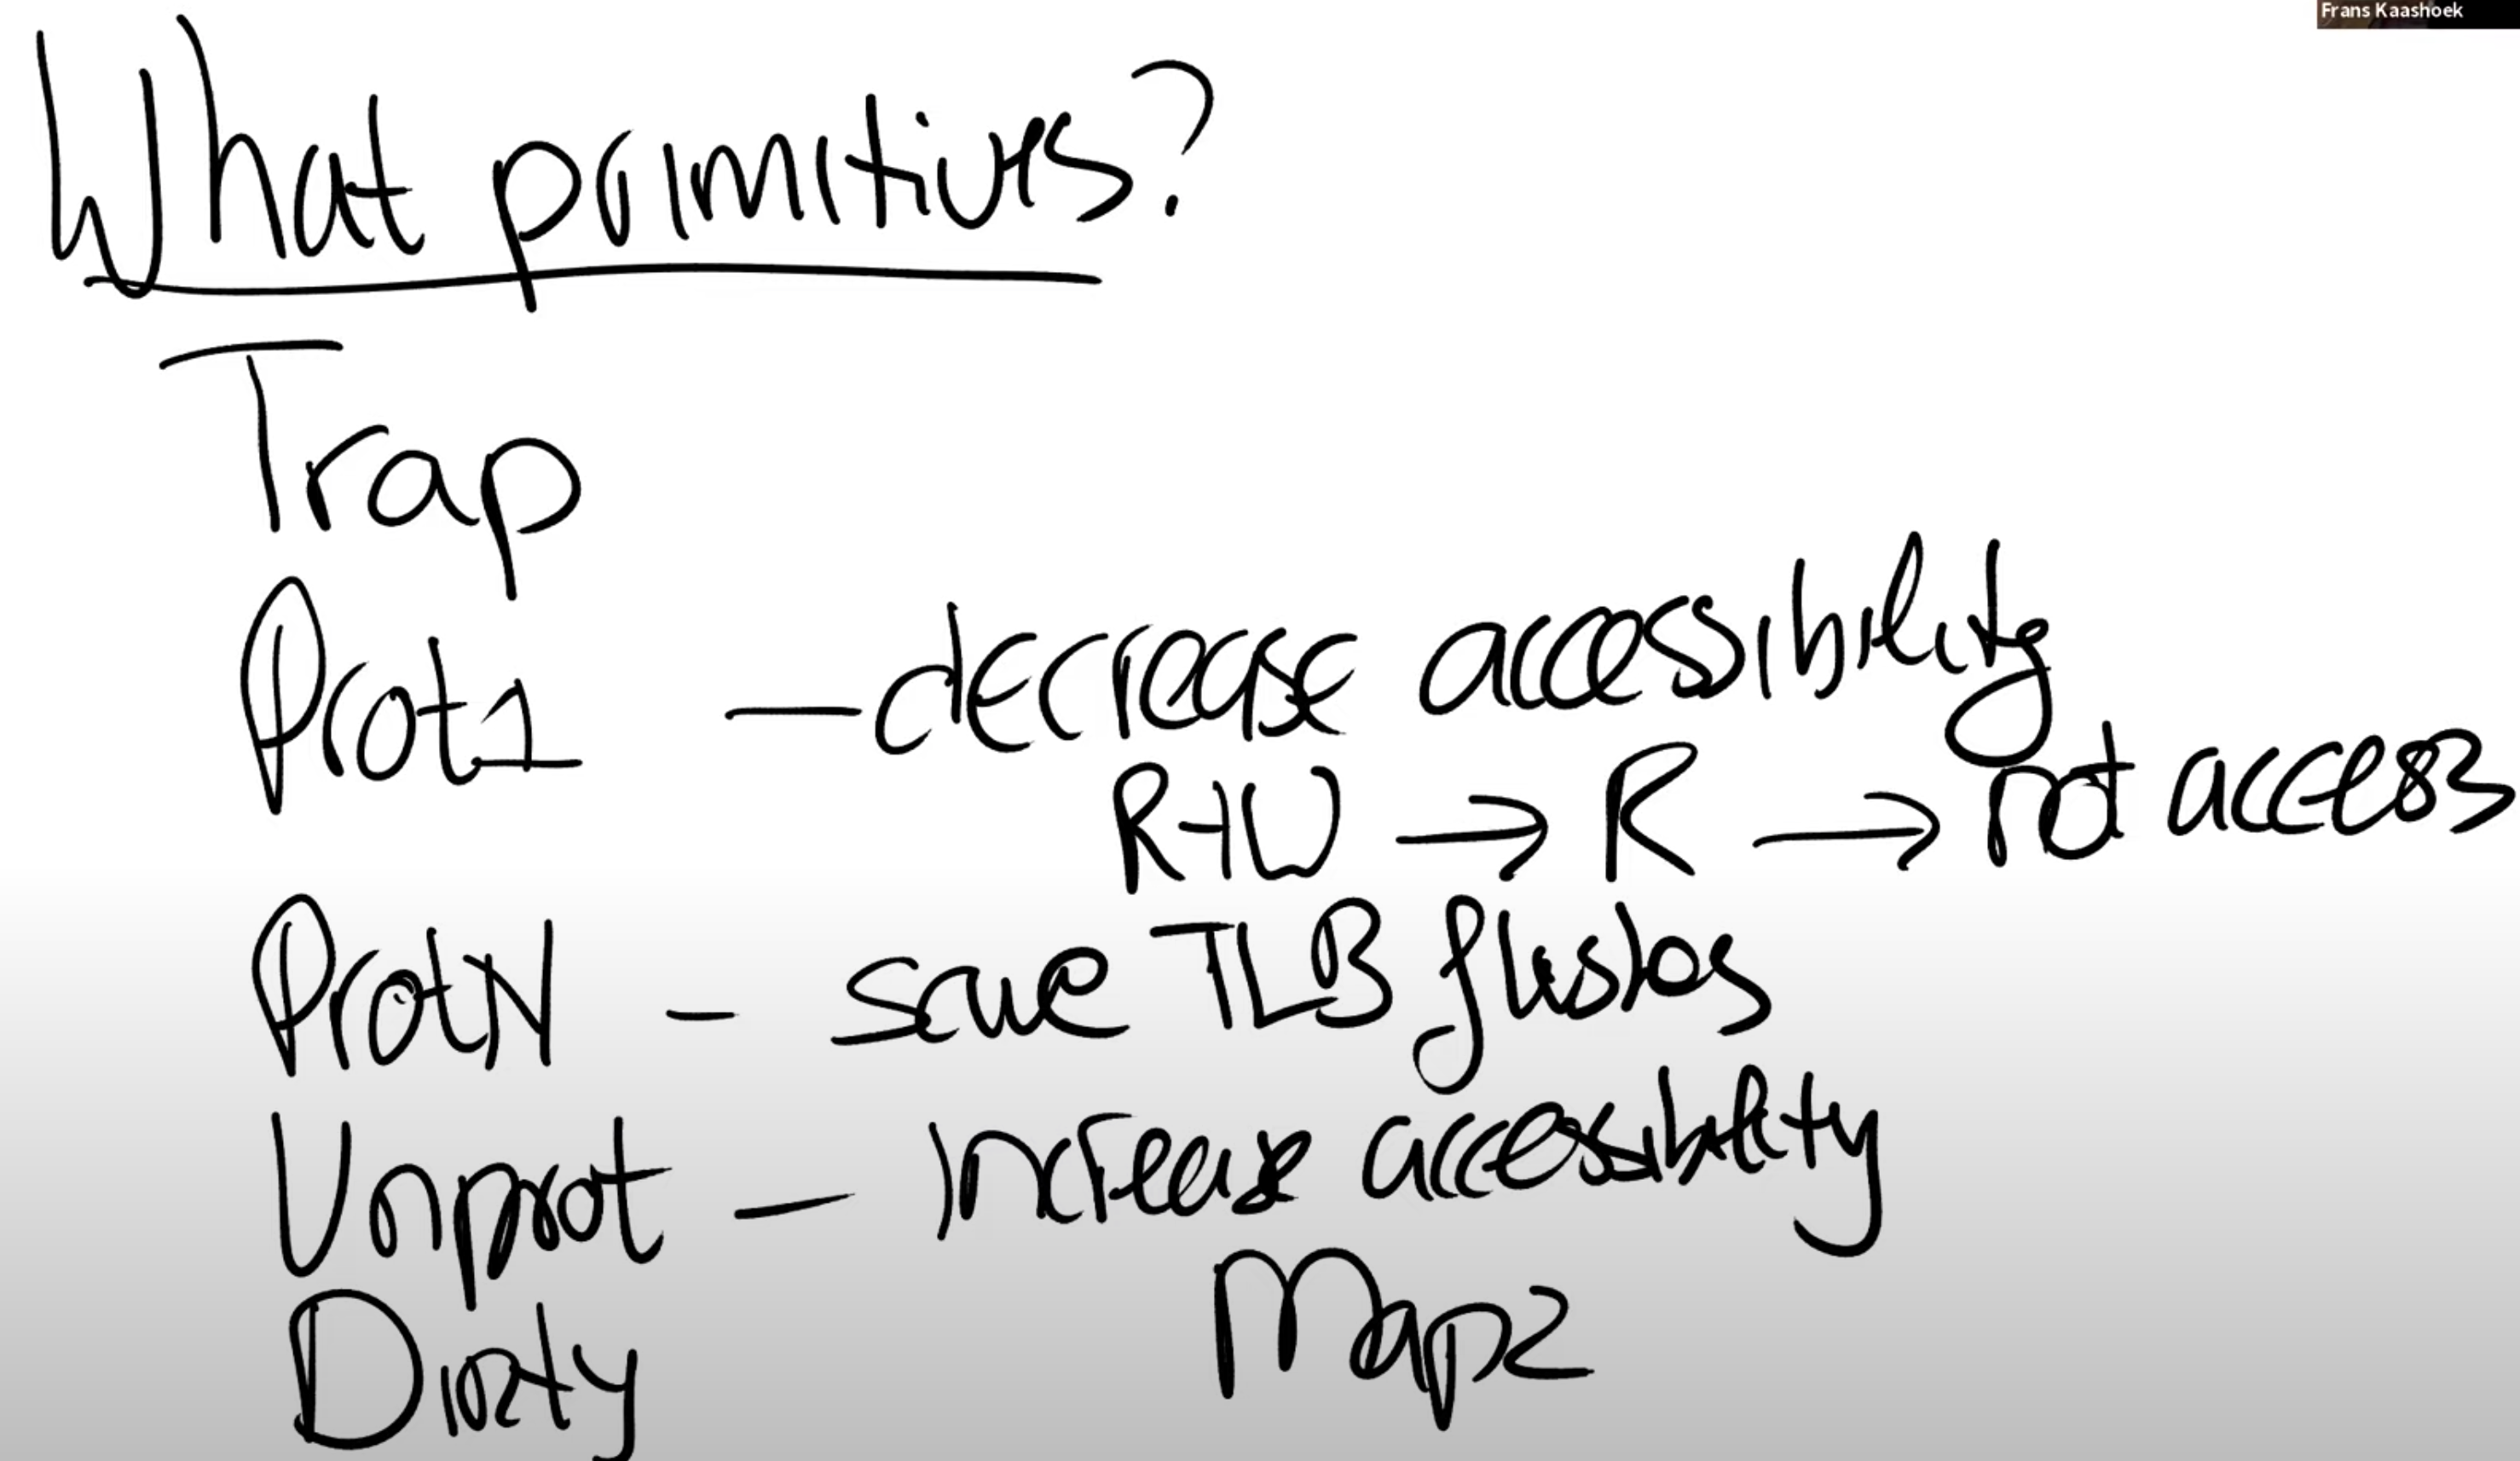 Frans Kaashoek
What primitives?
Trap
Prot1 — decrease accessibility
R+W → R → not access
ProtN — save TLB flushes
Unprot — increase accessibility
Dirty Map2